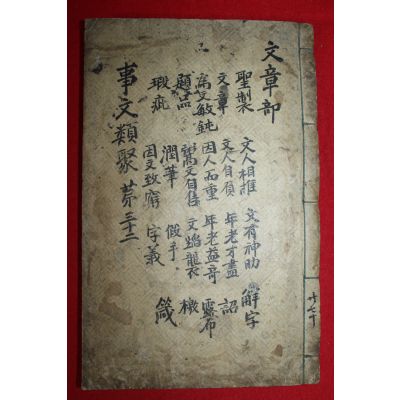 文章部
聖製 文人相推 文有神助 解字
文章 文人自負 年老才盡 詔
爲文敏鈍 因人而重 年老益奇 露布
題品 文自售 文蹈襲 檄
瑕疵 潤筆 假手 箴
因文致窮 字義
事文類聚 苐三十二